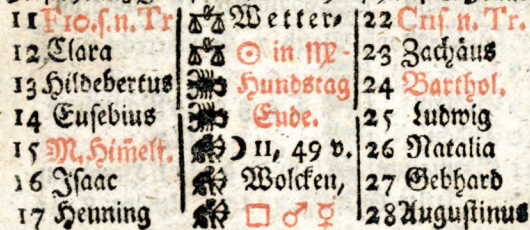 11 F10.s.n.Tr ♎♎ Wetter- 22 Cris n. Tr.
12 Clara ♎♎ ☉ in ♍- 23 Zachäus
13 Hildebertus Hundstag 24 Barthol.
14 Eusebius Ende. 25 Ludwig
15 M. Him̃elf. ☽ 11, 49 v. 26 Natalia
16 Isaac Wolcken, 27 Gebhard
17 Henning □ ♂ ☿ 28 Augustinus